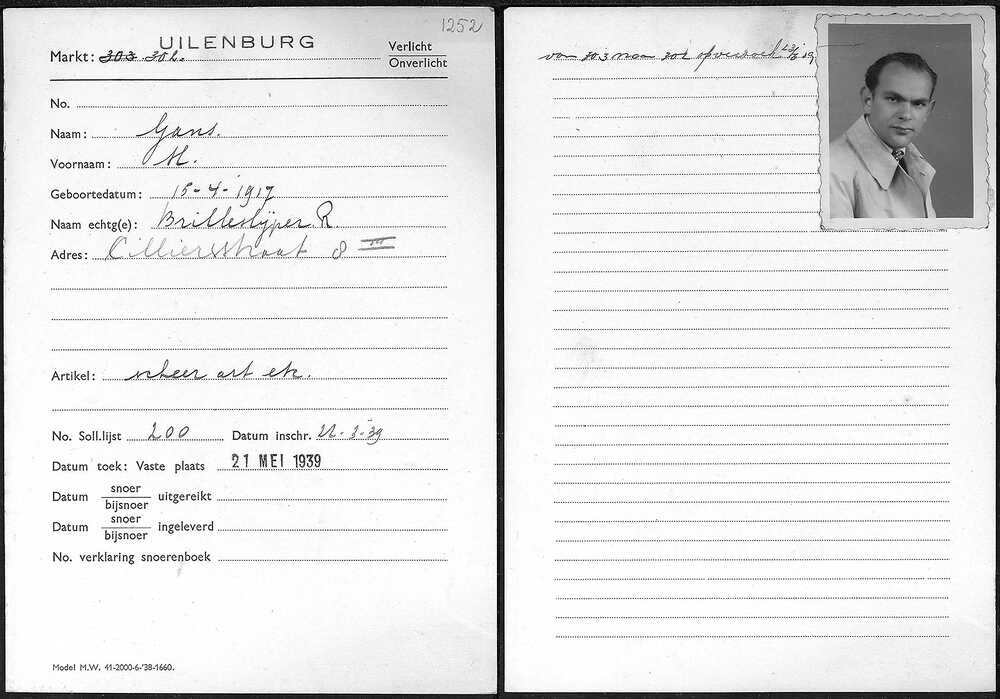 1252
UILENBURG
Markt: 303 302.
Verlicht
Onverlicht
No.
Naam: Gans.
Voornaam: M.
Geboortedatum: 15-4-1917
Naam echtg(e): Brilleslijper R.
Adres: Cilliersstraat 8 III
Artikel: scheer art etc.
No. Soll.lijst 200 Datum inschr. 22-3-39
Datum toek: Vaste plaats 21 MEI 1939
Datum snoer/bijsnoer uitgereikt
Datum snoer/bijsnoer ingeleverd
No. verklaring snoerenboek
Model M.W. 41-2000-6-'38-1660.
van 303 naar 302 op verzoek